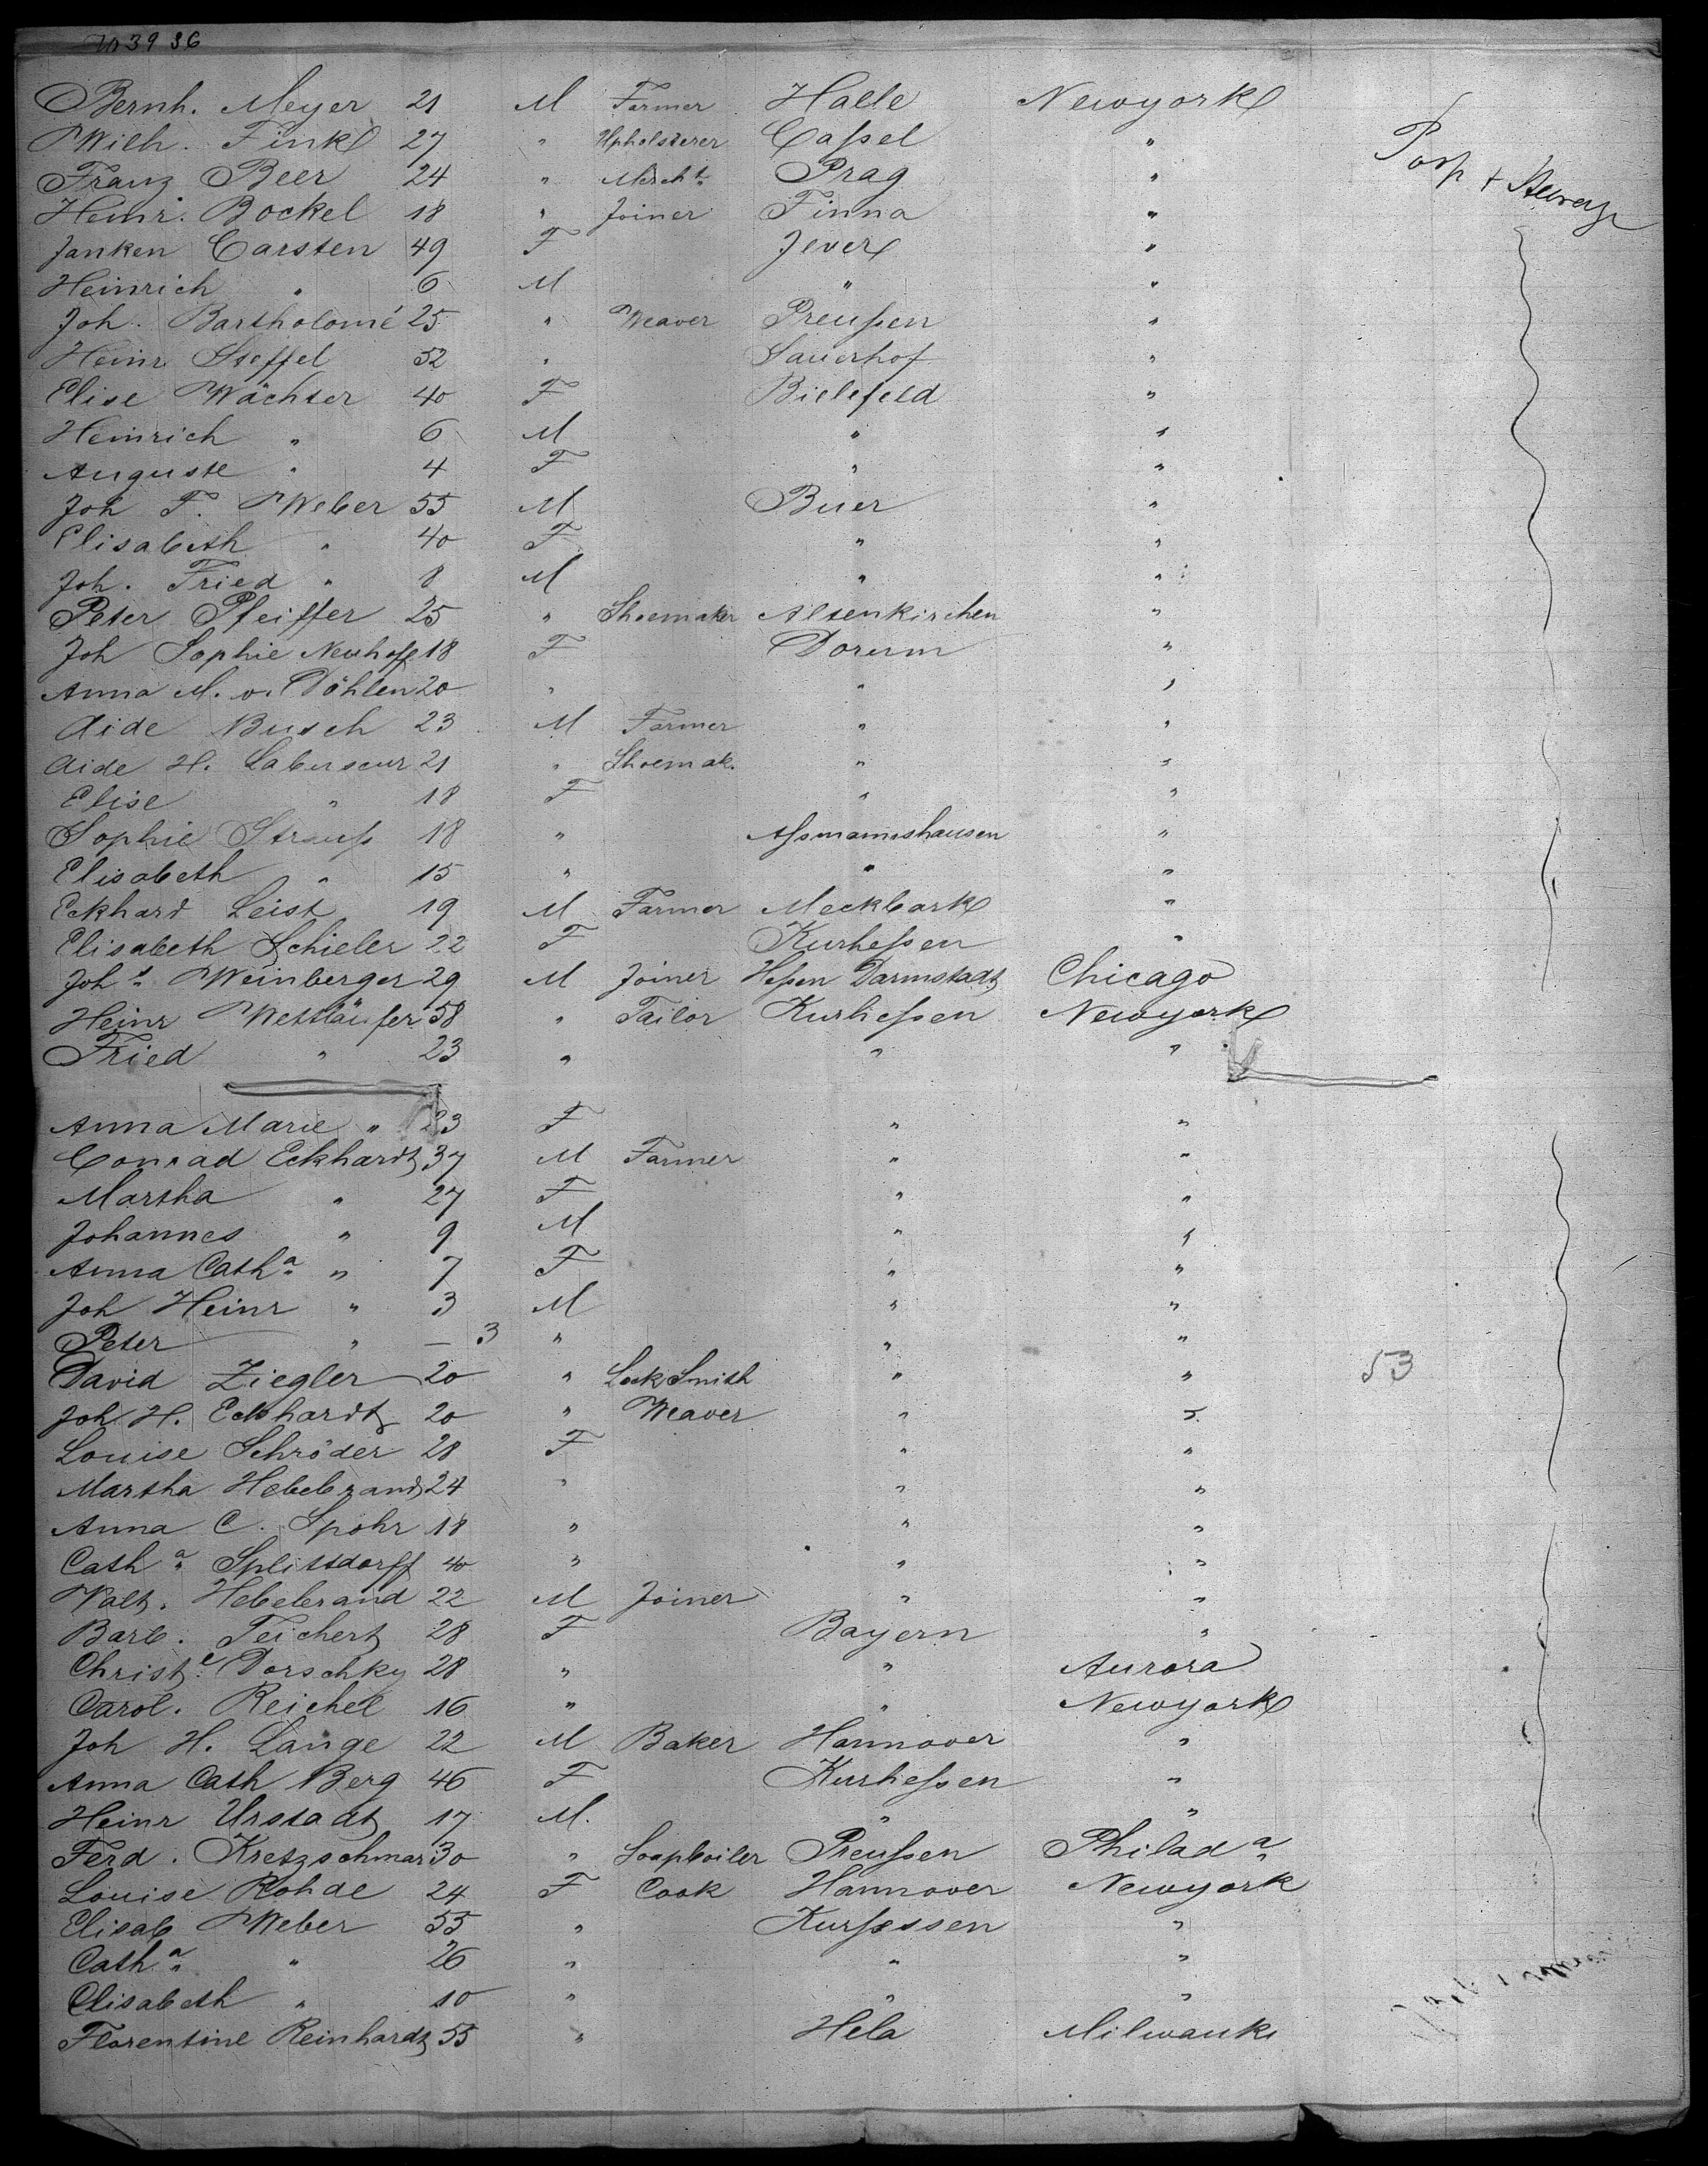 3936
Bernh. Meyer 21 M Farmer Halle Newyork
Wilh. Finke 27 " Upholsterer Caſsel "
Franz Beer 24 " Mercht. Prag "
Heinr. Bockel 18 " Joiner Finna "
Janken Carsten 49 F Jever "
Heinrich " 6 M " "
Joh. Bartholomé 25 " Weaver Preuſsen "
Heinr Steffel 52 " Sauerhof "
Elise Wächter 40 F Bielefeld "
Heinrich " 6 M " "
Auguste " 4 F " "
Joh F. Weber 55 M Buer "
Elisabeth " 40 F " "
Joh. Fried " 8 M " "
Peter Pfeiffer 25 " Shoemaker Altenkirchen "
Joh Sophie Neuhoff 18 F Dorum "
Anna M. v. Döhlen 20 " " "
Aide Busch 23 M Farmer " "
Aide H. 21 " Shoemak. " "
Elise " 18 F " "
Sophie Strauſs 18 " Aſsmannshausen "
Elisabeth " 15 " " "
Eckhard Leist 19 M Farmer Meckbark "
Elisabeth Schieler 22 F Kurheſsen "
Johs. Weinberger 29 M Joiner Heſsen Darmstadt Chicago
Heinr Wettläufer 58 " Tailor Kurheſsen Newyork
Fried " 23 " " "
Anna Marie " 23 F " "
Conrad Eckhardt 37 M Farmer " "
Martha " 27 F " "
Johannes " 9 M " "
Anna Catha. " 7 F " "
Joh Heinr " 3 M " "
Peter " — 3 " " "
David Ziegler 20 " Lock Smith " " 53
Joh. H. Eckhardt 20 " Weaver " "
Louise Schröder 28 F " "
Martha Hebebrand 24 " " "
Anna C. Spohr 18 " " "
Catha. Splittdorff 40 " " "
Walt. Hebebrand 22 M Joiner " "
Barb. Teichert 28 F Bayern "
Christe. Dorschky 28 " " Aurora
Carol. Reichel 16 " " Newyork
Joh H. Lange 22 M Baker Hannover "
Anna Cath Berg 46 F Kurheſsen "
Heinr Urstadt 17 M. " "
Ferd. Kretzschmar 30 " Soapboiler Preuſsen Philada.
Louise Rohde 24 F Cook Hannover Newyork
Elisab Weber 55 " Kurhessen "
Catha. " 26 " " "
Elisabeth " 10 " " "
Florentine Reinhardt 55 " Hela Milwauki